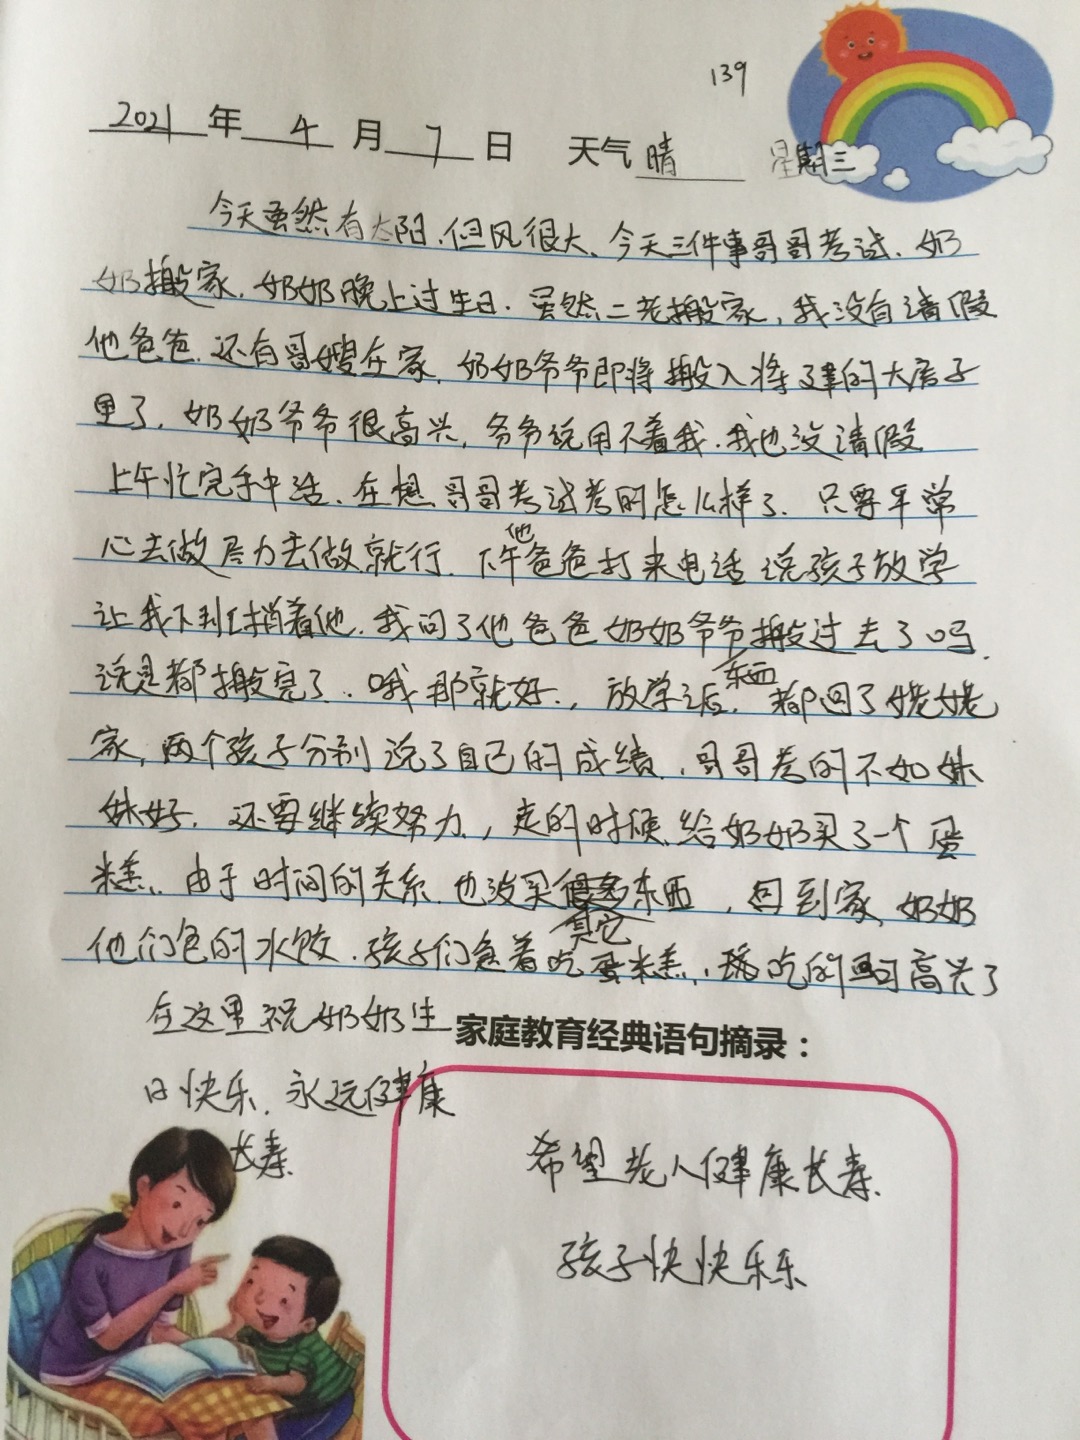 139
2021年4月7日 天气晴 星期三
今天虽然有太阳.但风很大、今天三件事哥哥考试、奶
奶搬家.奶奶晚上过生日.虽然二老搬家,我没有请假
他爸爸.还有哥嫂在家.奶奶爷爷即将搬入将建的大房子
里了.奶奶爷爷很高兴,爷爷说用不着我.我也没请假
上午忙完手中活.在想哥哥考试考的怎么样了.只要平常
心去做尽力去做就行.下午他爸爸打来电话说孩子放学
让我下班捎着他.我问了他爸爸奶奶爷爷搬过去了吗.
说是都搬完了.哦那就好.,放学之后.东西都回了姥姥
家,两个孩子分别说了自己的成绩.,哥哥考的不如妹
妹好.还要继续努力,走的时候给奶奶买了一个蛋
糕.由于时间的关系.也没买其它东西,回到家,奶奶
他们包的水饺.孩子们急着吃蛋糕,吃的可高兴了
在这里祝奶奶生
日快乐.永远健康
长寿.
家庭教育经典语句摘录:
希望老人健康长寿.
孩子快快乐乐